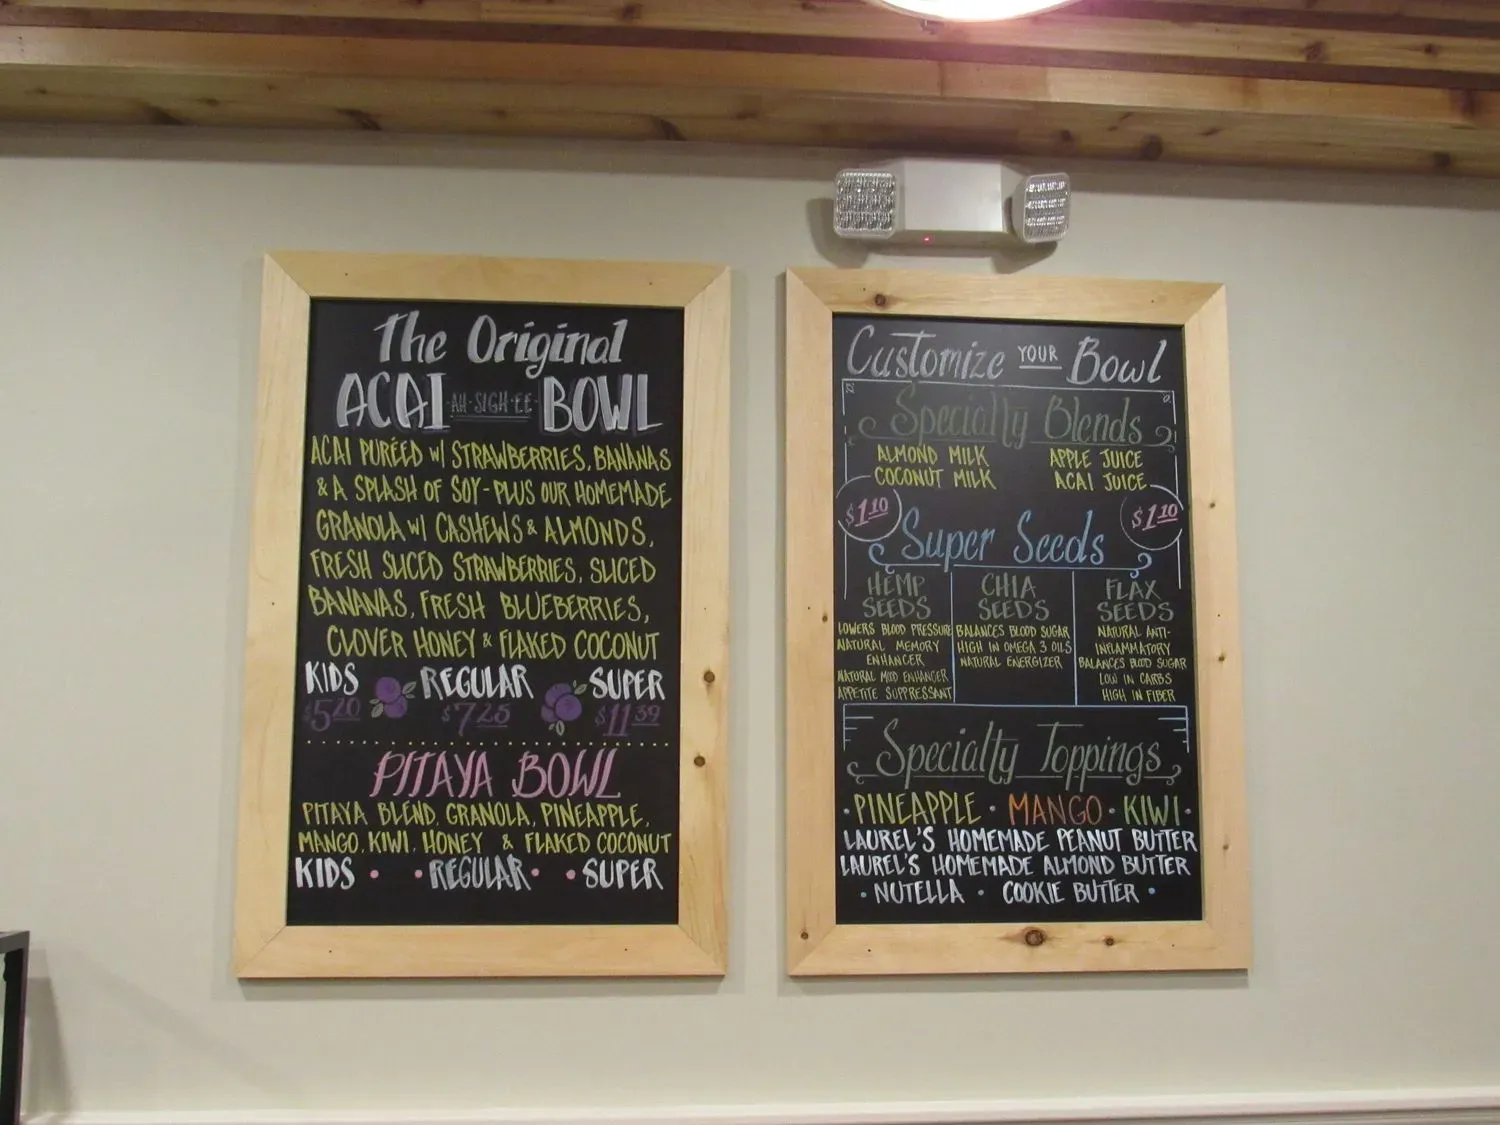 The Original
ACAI AH·SIGH·EE BOWL
ACAI PURÉED W/ STRAWBERRIES, BANANAS
& A SPLASH OF SOY - PLUS OUR HOMEMADE
GRANOLA W/ CASHEWS & ALMONDS,
FRESH SLICED STRAWBERRIES, SLICED
BANANAS, FRESH BLUEBERRIES,
CLOVER HONEY & FLAKED COCONUT
KIDS REGULAR SUPER
$5.20 $7.25 $11.39
PITAYA BOWL
PITAYA BLEND, GRANOLA, PINEAPPLE,
MANGO, KIWI, HONEY & FLAKED COCONUT
KIDS • • REGULAR • • SUPER
Customize YOUR Bowl
Specialty Blends
ALMOND MILK APPLE JUICE
COCONUT MILK ACAI JUICE
$1.10 $1.10
Super Seeds
HEMP SEEDS
LOWERS BLOOD PRESSURE
NATURAL MEMORY
ENHANCER
NATURAL MUD ENHANCER
APPETITE SUPPRESSANT
CHIA SEEDS
BALANCES BLOOD SUGAR
HIGH IN OMEGA 3 OILS
NATURAL ENERGIZER
FLAX SEEDS
NATURAL ANTI-
INFLAMMATORY
BALANCES BLOOD SUGAR
LOW IN CARBS
HIGH IN FIBER
Specialty Toppings
• PINEAPPLE • MANGO • KIWI •
LAUREL'S HOMEMADE PEANUT BUTTER
LAUREL'S HOMEMADE ALMOND BUTTER
• NUTELLA • COOKIE BUTTER •